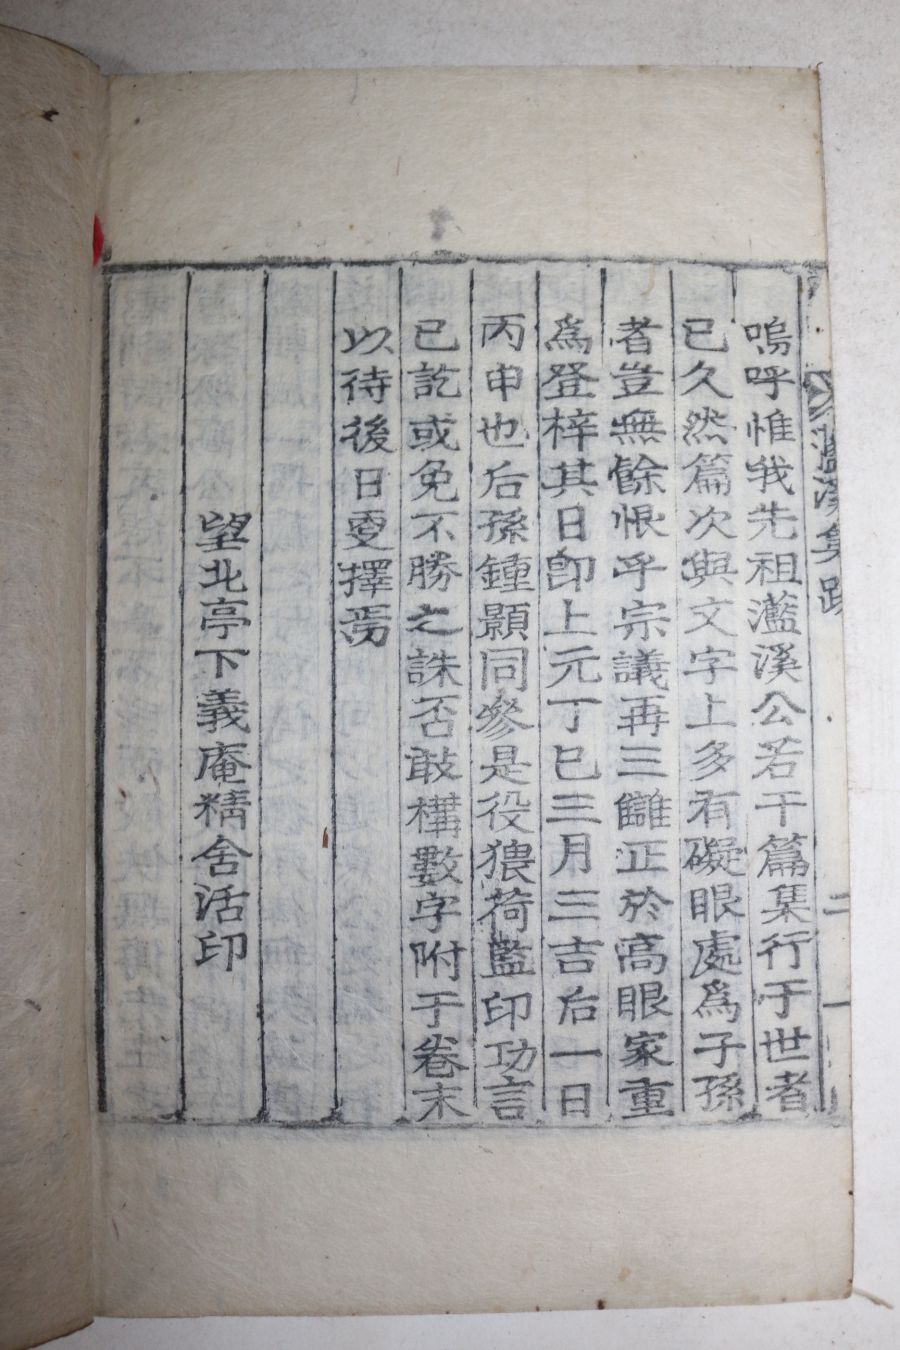 嗚呼惟我先祖灆溪公若干篇集行于世者
已久然篇次與文字上多有礙眼處爲子孫
者豈無餘恨乎宗議再三讎正於高眼家重
爲登梓其日卽上元丁巳三月三吉后一日
丙申也后孫鍾顯同參是役猥荷監印功言
已訖或免不勝之誅否敢構數字附于卷末
以待後日更擇焉
望北亭下義庵精舍活印
灆溪集跋
二
一